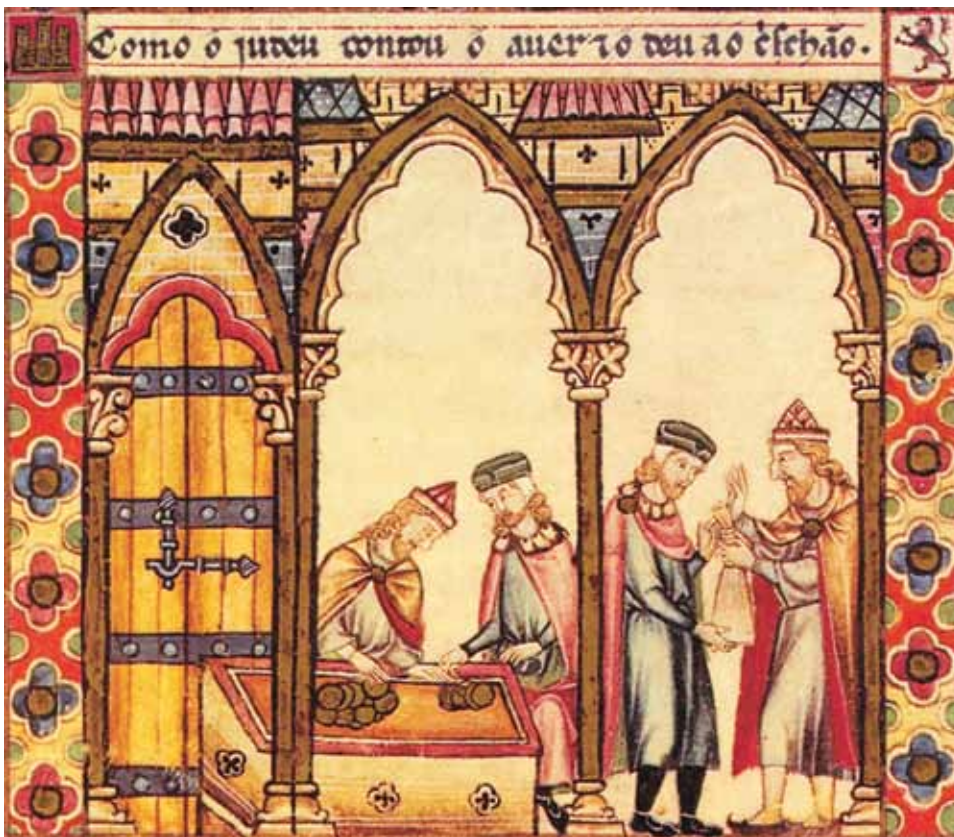 Como o iudeu contou o auer ⁊ o deu ao c̃ischão.